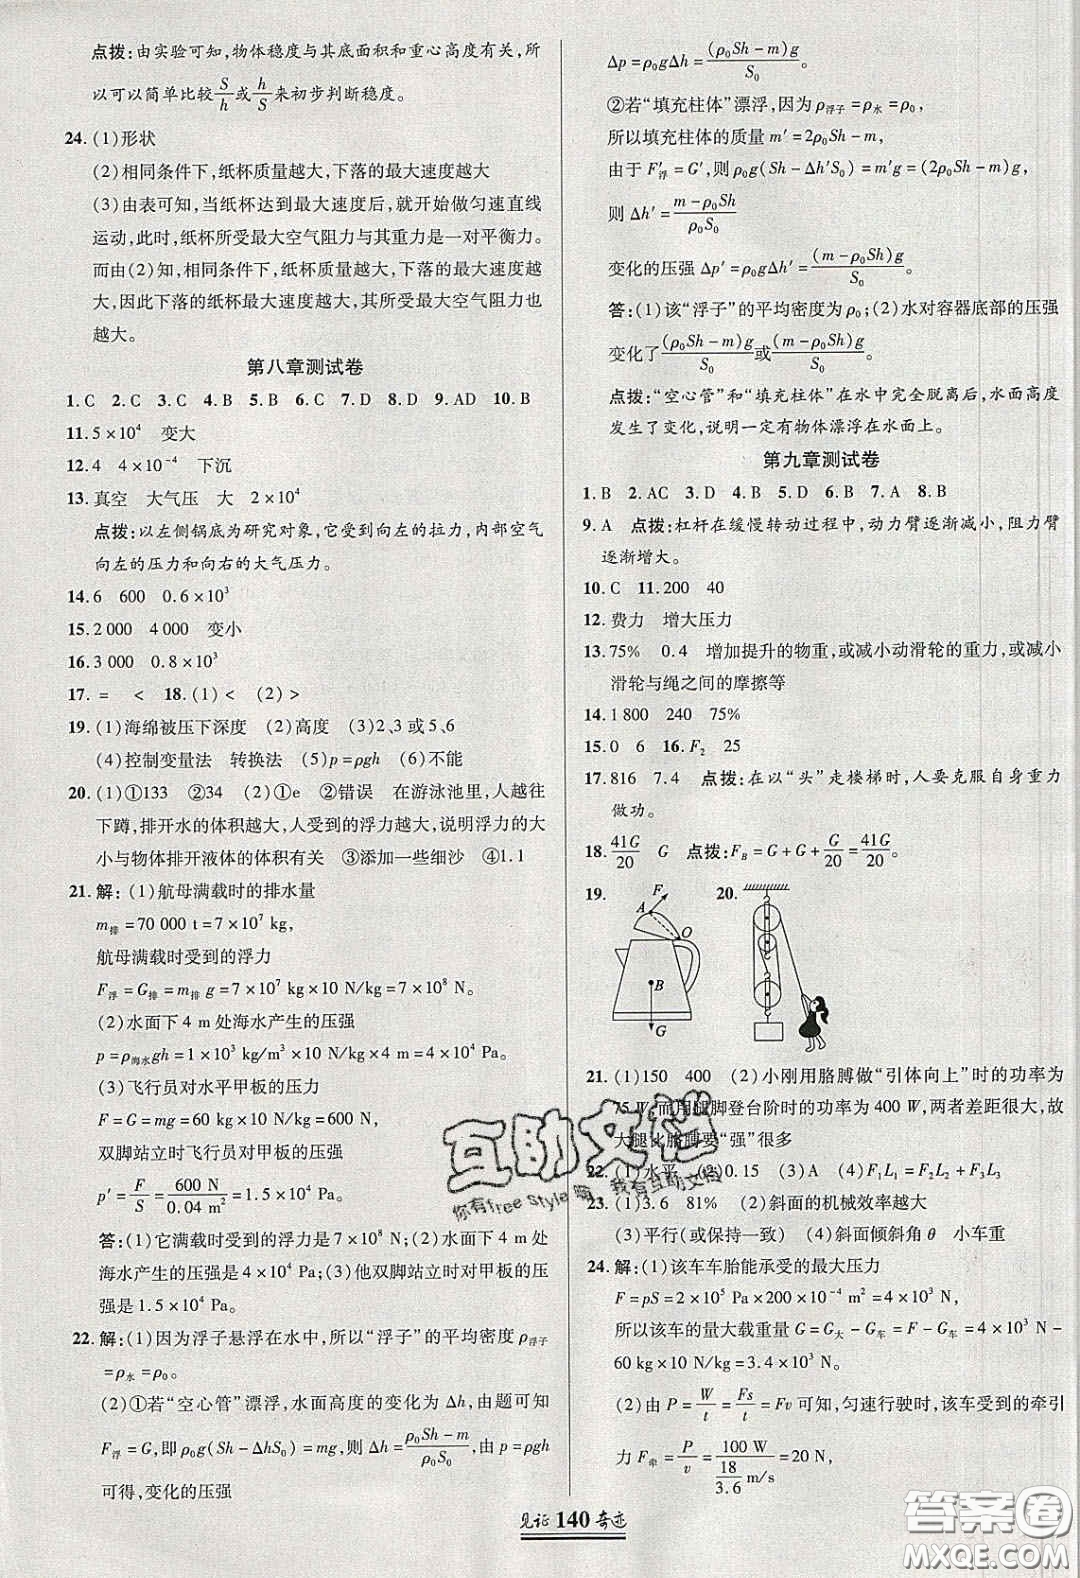 点拨:由实验可知,物体稳度与其底面积和重心高度有关,所
以可以简单比较S/h或h/S来初步判断稳度。
24.(1)形状
(2)相同条件下,纸杯质量越大,下落的最大速度越大
(3)由表可知,当纸杯达到最大速度后,就开始做匀速直线
运动,此时,纸杯所受最大空气阻力与其重力是一对平衡力。
而由(2)知,相同条件下,纸杯质量越大,下落的最大速度越
大,因此下落的纸杯最大速度越大,其所受最大空气阻力也
越大。
第八章测试卷
1.C 2.C 3.C 4.B 5.B 6.C 7.D 8.D 9.AD 10.B
11.5×10⁴ 变大
12.4 4×10⁻⁴ 下沉
13.真空 大气压 大 2×10⁴
点拨:以左侧锅底为研究对象,它受到向左的拉力,内部空气
向左的压力和向右的大气压力。
14.6 600 0.6×10³
15.2 000 4 000 变小
16.3 000 0.8×10³
17.= < 18.(1)< (2)>
19.(1)海绵被压下深度 (2)高度 (3)2、3或5、6
(4)控制变量法 转换法 (5)p=ρgh (6)不能
20.(1)①133 ②34 (2)①e ②错误 在游泳池里,人越往
下蹲,排开水的体积越大,人受到的浮力越大,说明浮力的大
小与物体排开液体的体积有关 ③添加一些细沙 ④1.1
21.解:(1)航母满载时的排水量
m排=70 000 t=7×10⁷ kg,
航母满载时受到的浮力
F浮=G排=m排g=7×10⁷ kg×10 N/kg=7×10⁸ N。
(2)水面下4 m处海水产生的压强
p=ρ海水gh=1×10³ kg/m³×10 N/kg×4 m=4×10⁴ Pa。
(3)飞行员对水平甲板的压力
F=G=mg=60 kg×10 N/kg=600 N,
双脚站立时飞行员对甲板的压强
p′=F/S=600 N/0.04 m²=1.5×10⁴ Pa。
答:(1)它满载时受到的浮力是7×10⁸ N;(2)水面下4 m处
海水产生的压强是4×10⁴ Pa;(3)他双脚站立时对甲板的压
强是1.5×10⁴ Pa。
22.解:(1)因为浮子悬浮在水中,所以“浮子”的平均密度ρ浮子
=ρ水=ρ₀。
(2)①若“空心管”漂浮,水面高度的变化为Δh,由题可知
F浮=G,即ρ₀g(Sh-ΔhS₀)=mg,则Δh=(ρ₀Sh-m)/(ρ₀S₀),由p=ρgh
可得,变化的压强
Δp=ρ₀gΔh=(ρ₀Sh-m)g/S₀。
②若“填充柱体”漂浮,因为ρ浮子=ρ水=ρ₀,
所以填充柱体的质量m′=2ρ₀Sh-m,
由于F′浮=G′,则ρ₀g(Sh-Δh′S₀)=m′g=(2ρ₀Sh-m)g,
则Δh′=(m-ρ₀Sh)/(ρ₀S₀)
变化的压强Δp′=ρ₀gΔh′=(m-ρ₀Sh)g/S₀。
答:(1)该“浮子”的平均密度为ρ₀;(2)水对容器底部的压强
变化了(ρ₀Sh-m)g/S₀或(m-ρ₀Sh)g/S₀。
点拨:“空心管”和“填充柱体”在水中完全脱离后,水面高度
发生了变化,说明一定有物体漂浮在水面上。
第九章测试卷
1.B 2.AC 3.D 4.D 5.B 6.B 7.A 8.B
9.A 点拨:杠杆在缓慢转动过程中,动力臂逐渐减小,阻力臂
逐渐增大。
10.C 11.200 40
12.费力 增大压力
13.75% 0.4 增加提升的物重,或减小动滑轮的重力,或减小
滑轮与绳之间的摩擦等
14.1 800 240 75%
15.0 6 16.F₂ 25
17.816 7.4 点拨:在以“头”走楼梯时,人要克服自身重力
做功。
18.41G/20 G 点拨:F_B=G+G+G/20=41G/20。
19. 20.
F
A
O
B
G
21.(1)150 400 (2)小刚用胳膊做“引体向上”时的功率为
75 W,而用腿脚登台阶时的功率为400 W,两者差距很大,故
大腿比胳膊要“强”很多
22.(1)水平 (2)0.15 (3)A (4)F₁L₁=F₂L₂+F₃L₃
23.(1)3.6 81% (2)斜面的机械效率越大
(3)平行(或保持一致) (4)斜面倾斜角θ 小车重
24.解:(1)该车车胎能承受的最大压力
F=pS=2×10⁵ Pa×200×10⁻⁴ m²=4×10³ N,
所以该车的最大载重量G=G大-G车=F-G车=4×10³ N-
60 kg×10 N/kg=3.4×10³ N。
(2)由P=W/t=Fs/t=Fv可知,匀速行驶时,该车受到的牵引
力F牵=P/v=100 W/(18/3.6 m/s)=20 N,
见证140奇迹
互助文档
你有free style嘛 我有互助文档
答案圈
MXQE.COM